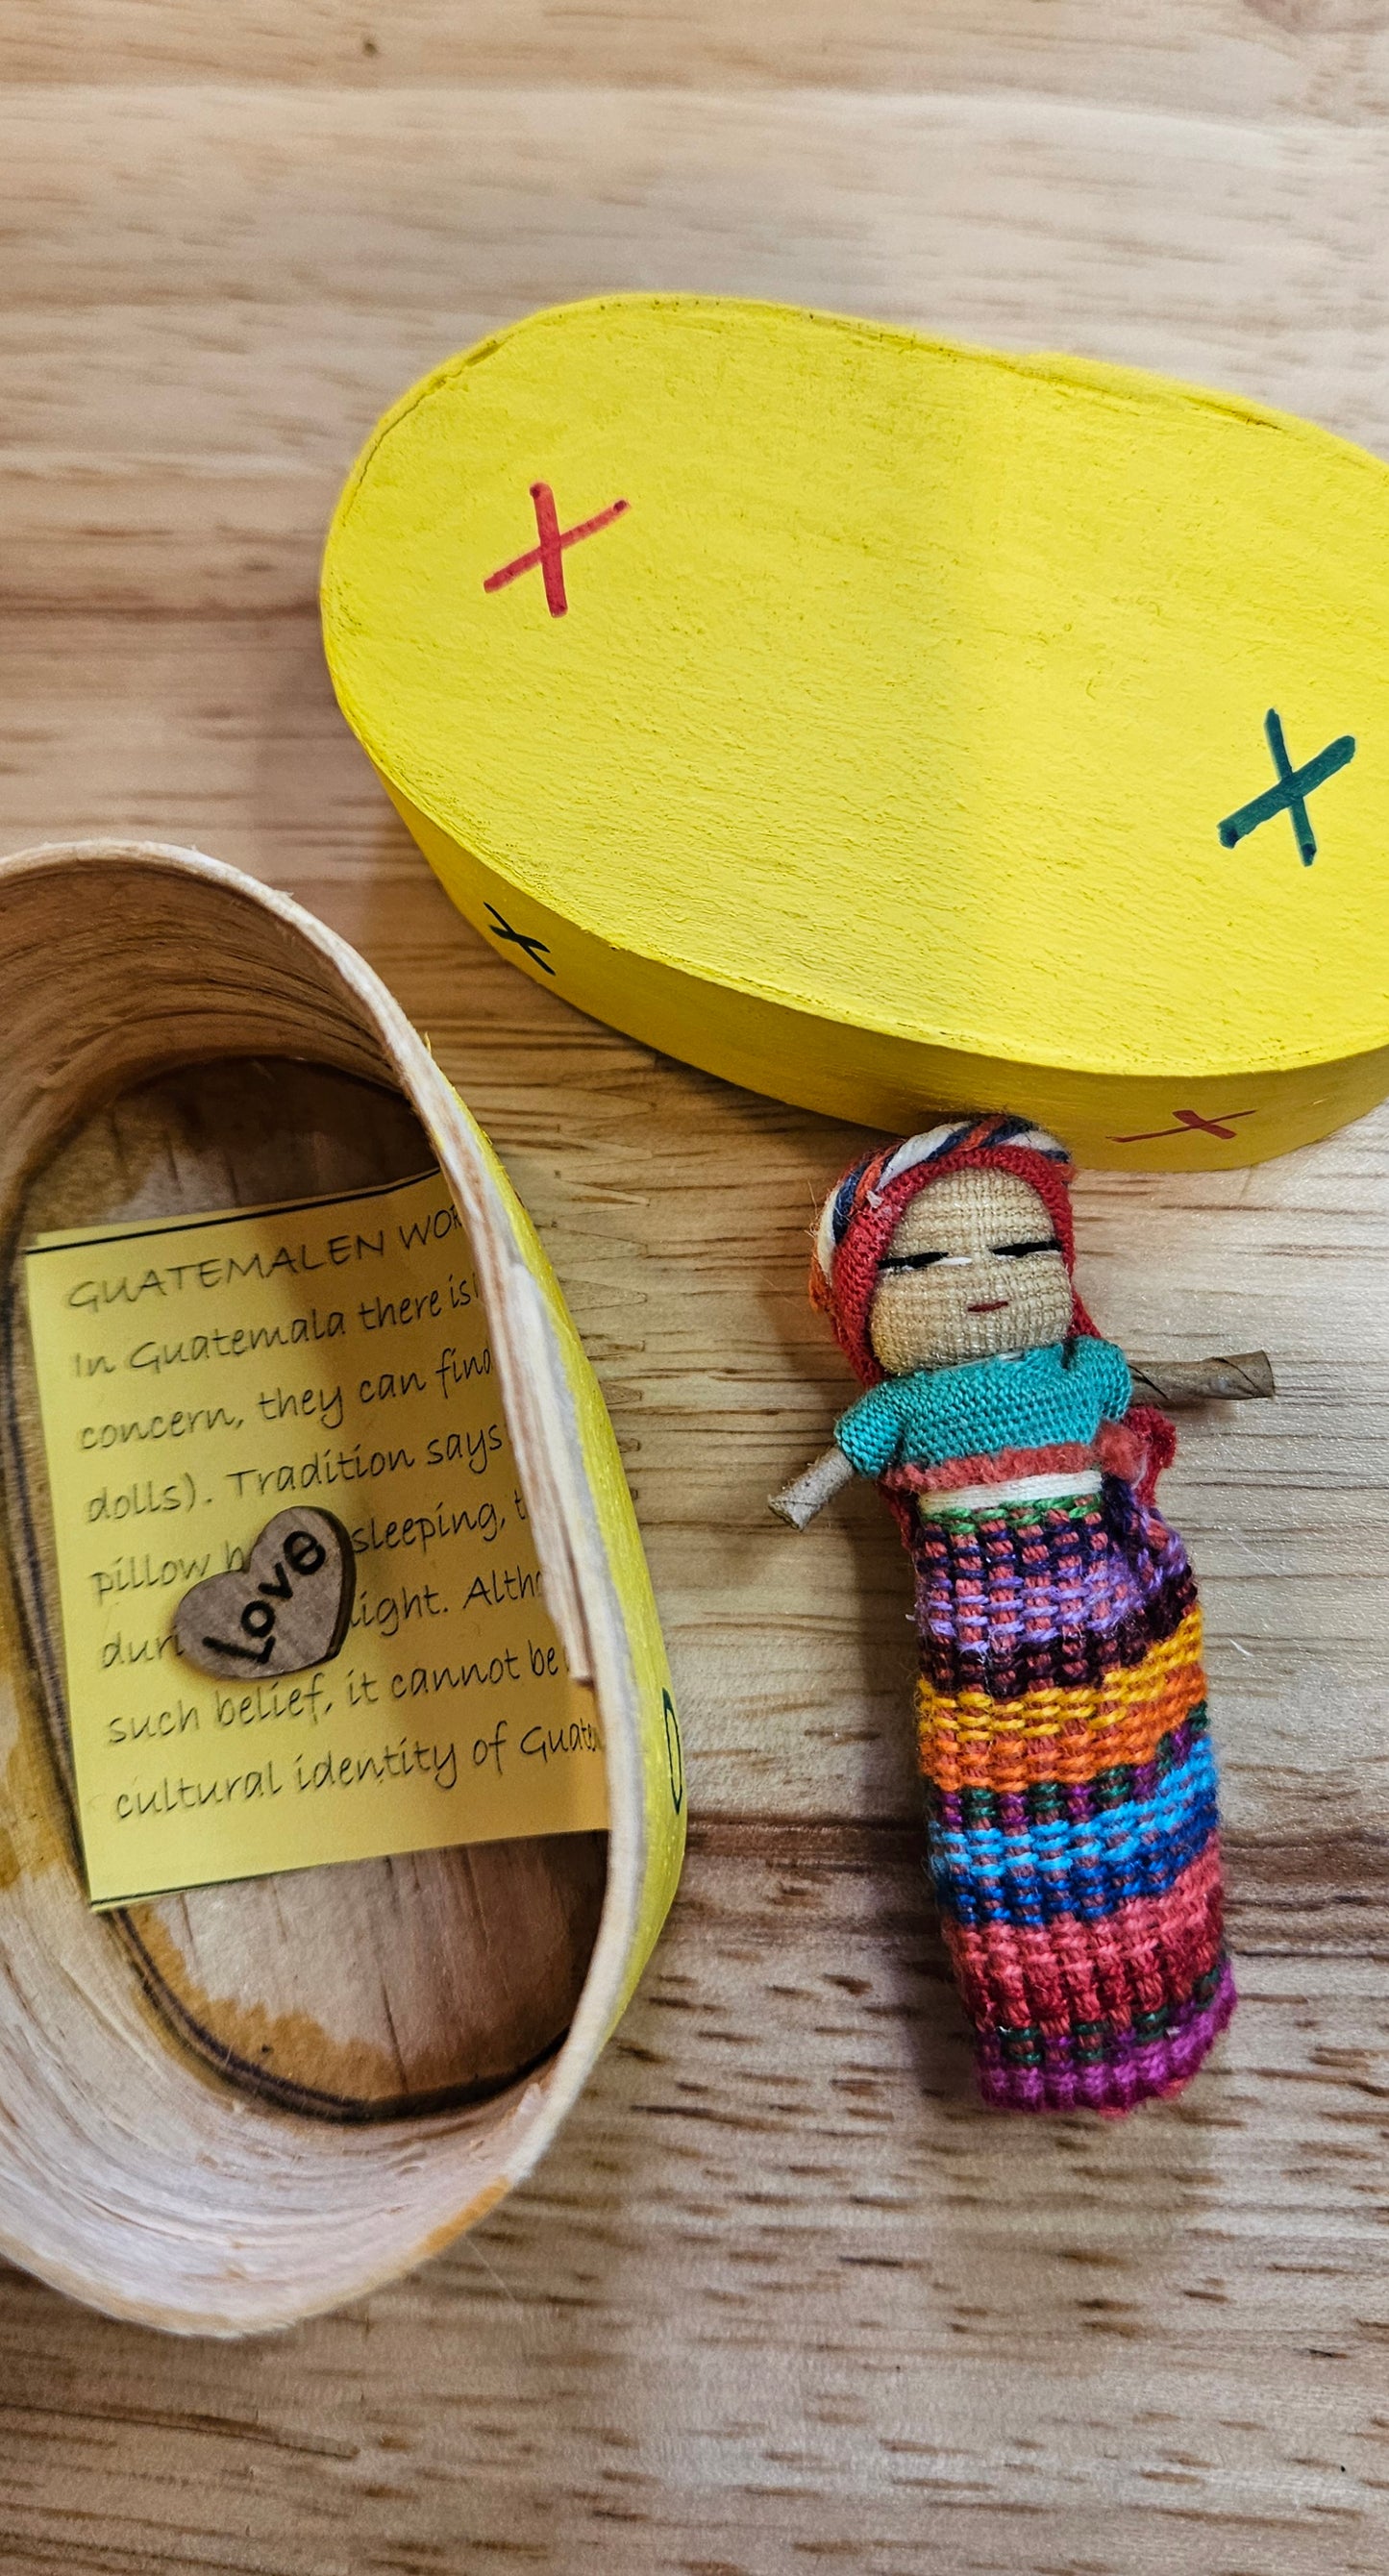 GUATEMALEN WOR
In Guatemala there is
concern, they can find
dolls). Tradition says
pillow b sleeping, t
duri light. Altho
such belief, it cannot be
cultural identity of Guate
Love